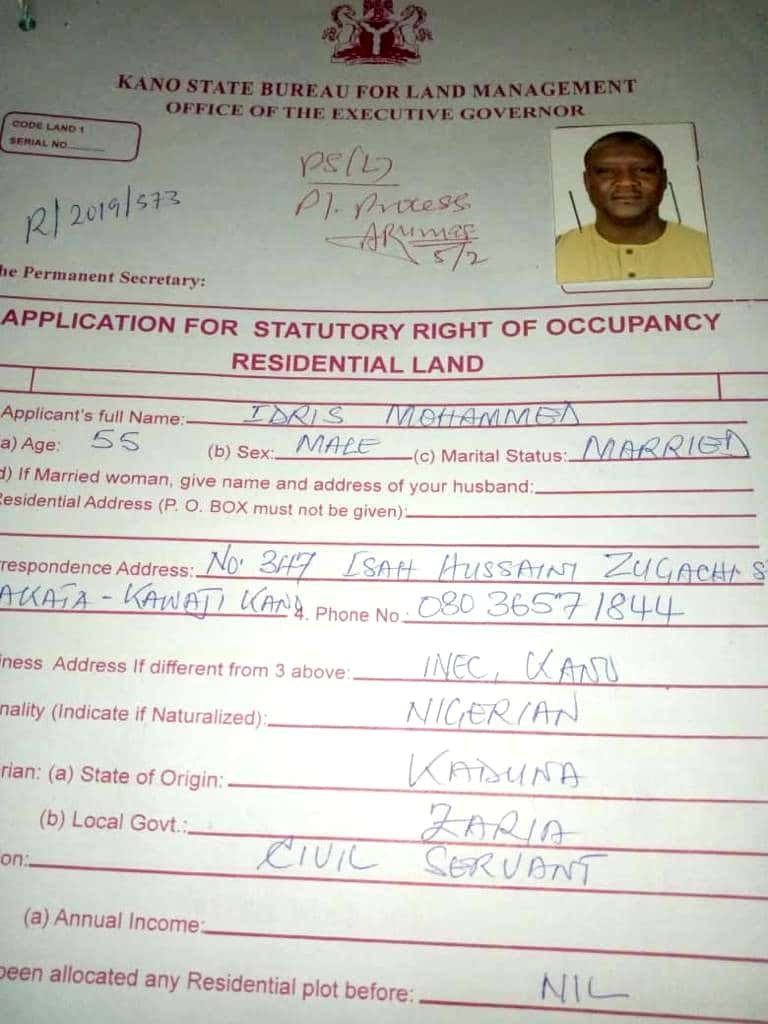 KANO STATE BUREAU FOR LAND MANAGEMENT
OFFICE OF THE EXECUTIVE GOVERNOR
CODE LAND 1
SERIAL NO.
R/2019/573
PS(L)
Pl. Process
5/2
he Permanent Secretary:
APPLICATION FOR STATUTORY RIGHT OF OCCUPANCY
RESIDENTIAL LAND
Applicant's full Name: IDRIS MOHAMMED
a) Age: 55 (b) Sex: MALE (c) Marital Status: MARRIED
d) If Married woman, give name and address of your husband:
Residential Address (P. O. BOX must not be given):
rrespondence Address: No. 347 ISAH HUSSAINI ZUGACHI S
AKATA - KAWAJI KANO 4. Phone No.: 08036571844
iness Address If different from 3 above: INEC, KANO
nality (Indicate if Naturalized): NIGERIAN
rian: (a) State of Origin: KADUNA
(b) Local Govt.: ZARIA
on: CIVIL SERVANT
(a) Annual Income:
been allocated any Residential plot before: NIL